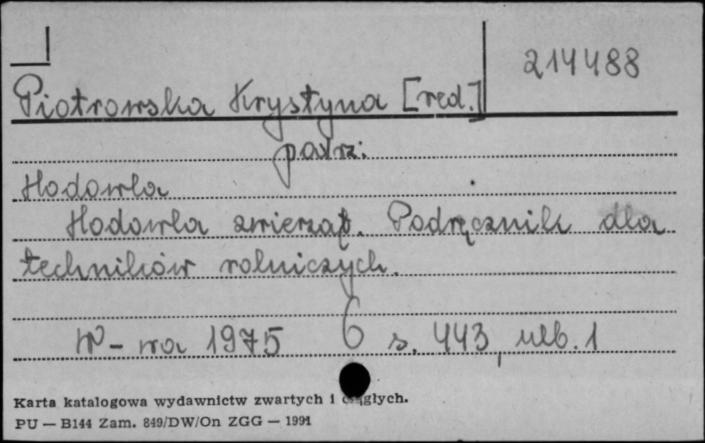 214488
Piotrowska Krystyna [red.]
patrz:
Hodowla
Hodowla zwierząt. Podręcznik dla
techników rolniczych.
W-wa 1975 6 s. 443, nlb. 1
Karta katalogowa wydawnictw zwartych i ciągłych.
PU — B144 Zam. 849/DW/On ZGG — 1991